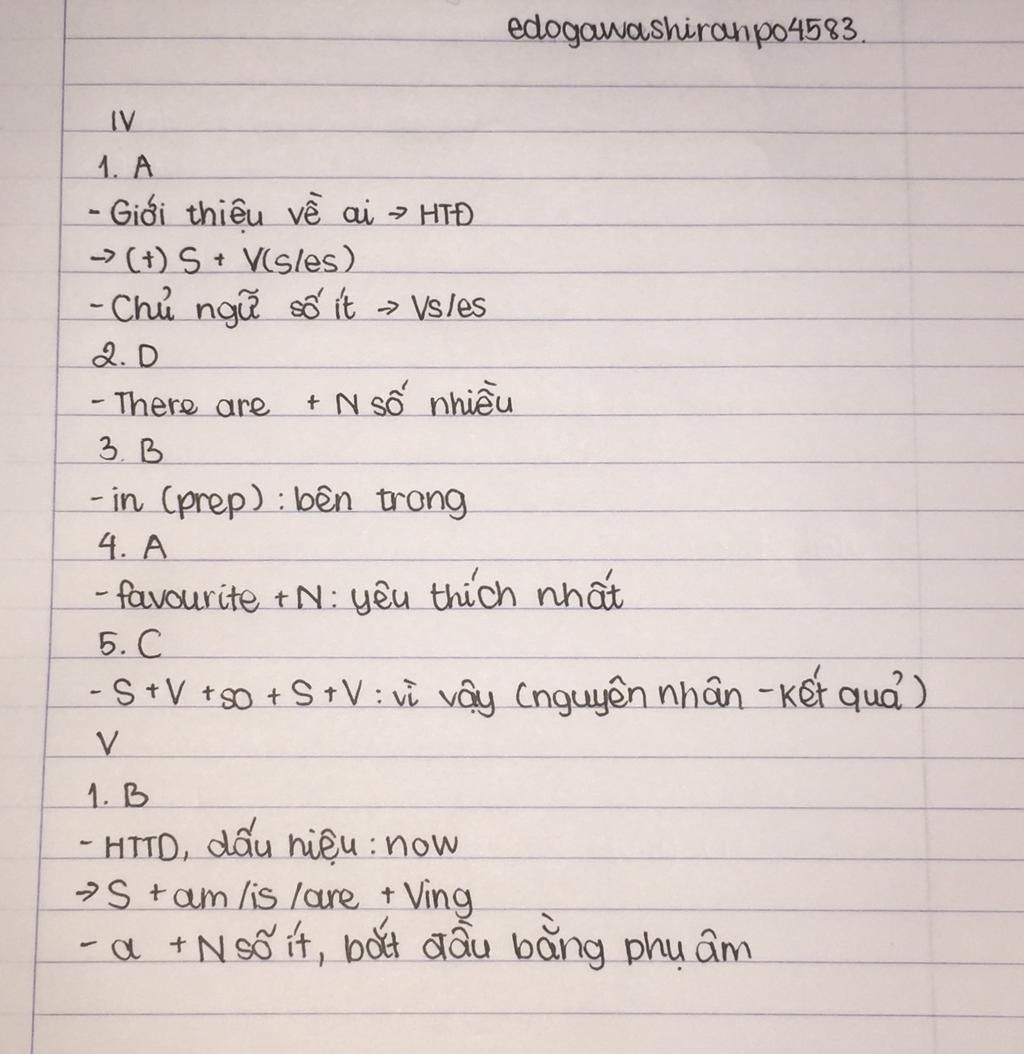 edogawashiranpo4583.
IV
1. A
- Giới thiệu về ai → HTĐ
→ (+) S + V(s/es)
- Chủ ngữ số ít → Vs/es
2. D
- There are + N số nhiều
3. B
- in (prep) : bên trong
4. A
- favourite + N : yêu thích nhất
5. C
- S + V + so + S + V : vì vậy (nguyên nhân - kết quả)
V
1. B
- HTTD, dấu hiệu : now
→ S + am /is /are + Ving
- a + N số ít, bắt đầu bằng phụ âm